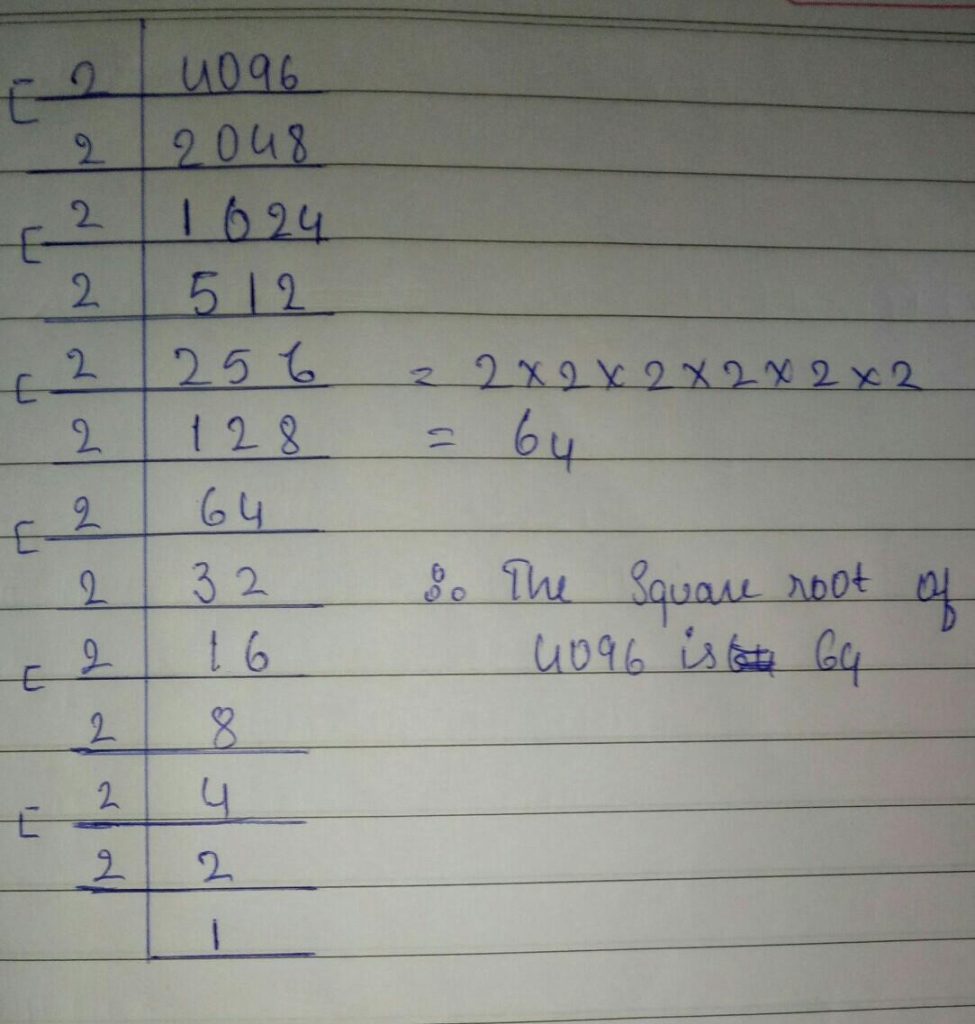 2 4096
2 2048
2 1024
2 512
2 256 = 2×2×2×2×2×2
2 128 = 64
2 64
2 32 ∴ The Square root of
2 16 4096 is 64
2 8
2 4
2 2
1